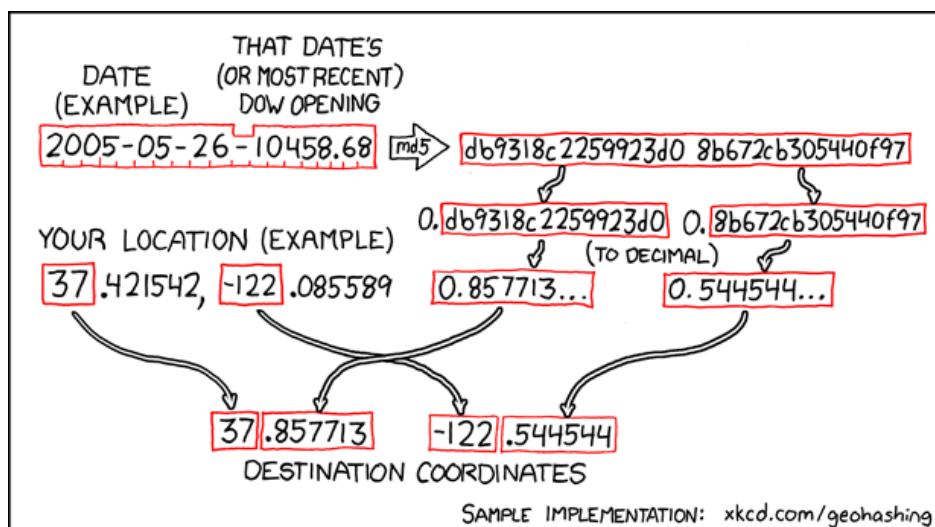 DATE
(EXAMPLE)
THAT DATE'S
(OR MOST RECENT)
DOW OPENING
2005-05-26-10458.68
md5
db9318c2259923d0 8b672cb305440f97
0.db9318c2259923d0
0.8b672cb305440f97
YOUR LOCATION (EXAMPLE)
(TO DECIMAL)
37.421542, -122.085589
0.857713...
0.544544...
37.857713
-122.544544
DESTINATION COORDINATES
SAMPLE IMPLEMENTATION: xkcd.com/geohashing